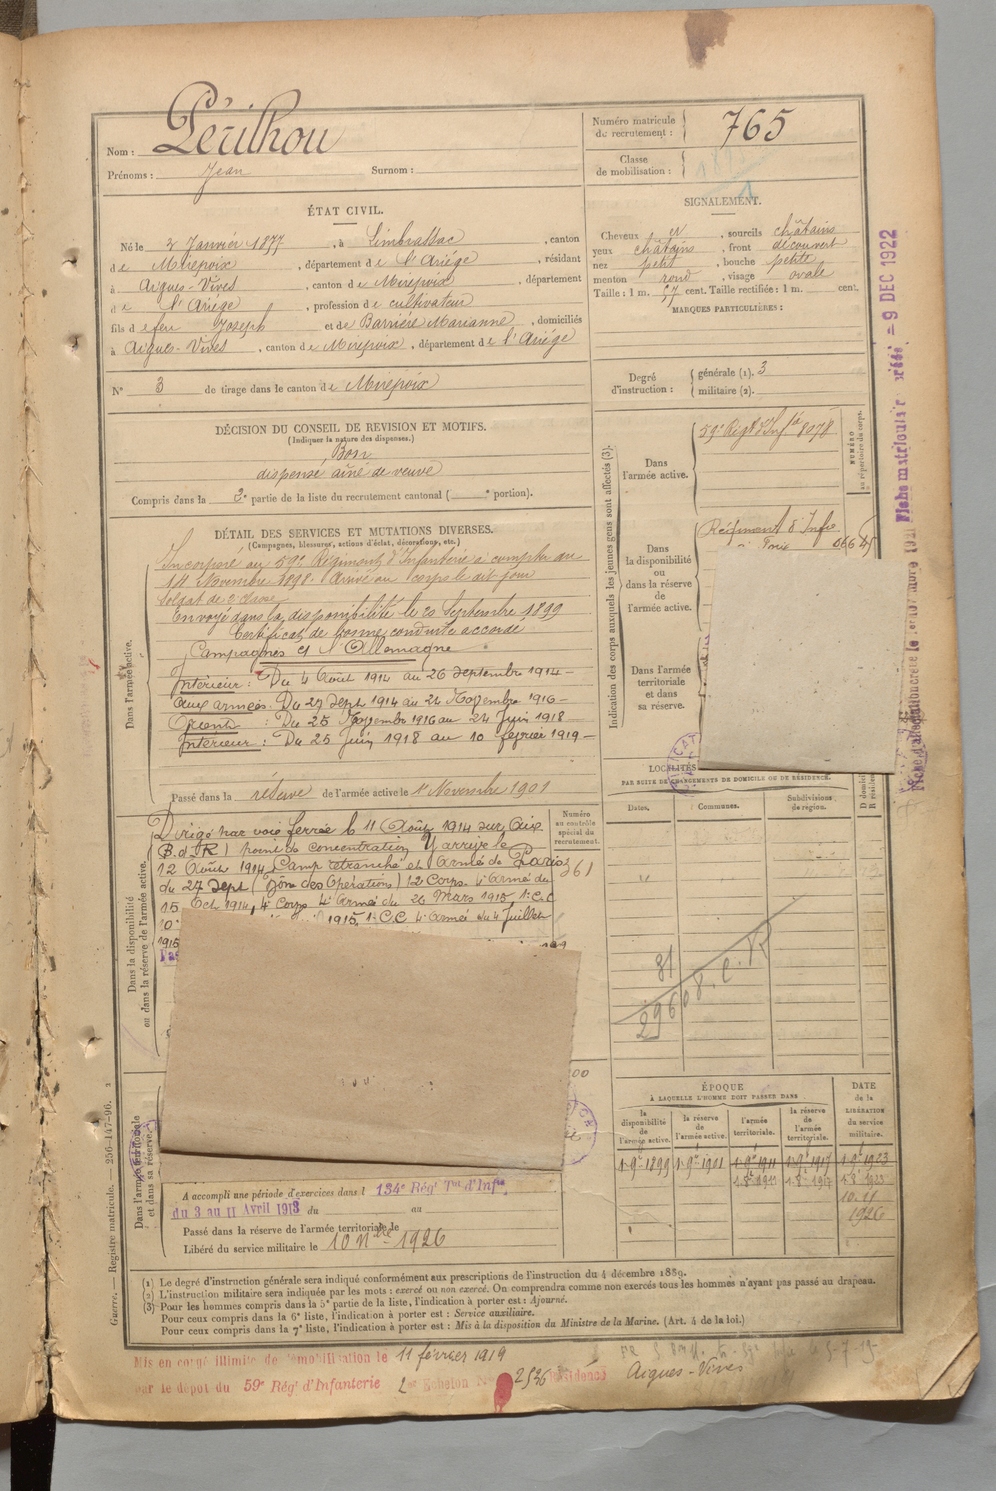 Nom : Périlhou
Prénoms : Jean Surnom :
Numéro matricule
de recrutement : 765
Classe
de mobilisation :
ÉTAT CIVIL.
Né le 2 Janvier 1877, à Limbrassac, canton
de Mirepoix, département de l'Ariège, résidant
à Aigues-Vives, canton de Mirepoix, département
de l'Ariège, profession de cultivateur
fils de feu Joseph et de Barrière Marianne, domiciliés
à Aigues-Vives, canton de Mirepoix, département de l'Ariège
N° 3 de tirage dans le canton de Mirepoix
SIGNALEMENT.
Cheveux et, sourcils châtains
yeux châtains, front découvert
nez petit, bouche petite
menton rond, visage ovale
Taille : 1 m. 57 cent. Taille rectifiée : 1 m. cent.
MARQUES PARTICULIÈRES :
Degré
d'instruction :
générale (1). 3
militaire (2).
DÉCISION DU CONSEIL DE REVISION ET MOTIFS.
(Indiquer la nature des dispenses.)
Bon
dispensé aîné de veuve
Compris dans la 2e partie de la liste du recrutement cantonal ( e portion).
DÉTAIL DES SERVICES ET MUTATIONS DIVERSES.
(Campagnes, blessures, actions d'éclat, décorations, etc.)
Dans l'armée active.
Incorporé au 59e Régiment d'Infanterie à compter du
14 Novembre 1898. Arrivé au corps le dit jour
soldat de 2e classe
Envoyé dans la disponibilité le 20 Septembre 1899
Certificat de bonne conduite accordé
Campagnes et l'Allemagne
Intérieur : Du 4 Août 1914 au 26 Septembre 1914
aux armées : Du 27 Sept 1914 au 24 Novembre 1916
Orient : Du 25 Novembre 1916 au 24 Juin 1918
Intérieur : Du 25 Juin 1918 au 10 février 1919
Passé dans la réserve de l'armée active le 1 Novembre 1901
Dans la disponibilité
ou dans la réserve de l'armée active.
Dirigé par voie ferrée le 11 Août 1914 sur Aix
(B.d.R) point de concentration Y arrive le
12 Août 1914 Camp retranché et Armée de Paris
du 27 Sept (Zone des Opérations) 12 Corps 4e Armée du
15 Oct 1914, 4e Corps 4e Armée du 20 Mars 1915, 1e C.C
1915, 1e C.C 4e Armée du 4 Juillet
1915
Numéro
au contrôle
spécial du
recrutement.
361
Indication des corps auxquels les jeunes gens sont affectés (3).
Dans
l'armée active.
59e Régt d'Infie 8078
NUMÉRO
au répertoire du corps.
Dans
la disponibilité
ou
dans la réserve
de
l'armée active.
Régiment d'Infie
Dans l'armée
territoriale
et dans
sa réserve.
LOCALITÉS
PAR SUITE DE CHANGEMENTS DE DOMICILE OU DE RÉSIDENCE.
Dates.
Communes.
Subdivisions
de région.
81
29608. C. R
ÉPOQUE
À LAQUELLE L'HOMME DOIT PASSER DANS
la
disponibilité
de
l'armée active.
la réserve
de
l'armée active.
l'armée
territoriale.
la réserve
de
l'armée
territoriale.
DATE
de la
LIBÉRATION
du service
militaire.
1.9e 1899 1.9e 1901 1.9e 1911 1.9e 1917 1.9e 1923
1.8e 1911 1.8e 1917 1.8e 1923
10.11
1926
Dans l'armée territoriale
et dans sa réserve.
A accompli une période d'exercices dans l 134e Régt Tal d'Infie
du 3 au 11 Avril 1913 du au
Passé dans la réserve de l'armée territoriale le
Libéré du service militaire le 10 Nbre 1926
(1) Le degré d'instruction générale sera indiqué conformément aux prescriptions de l'instruction du 4 décembre 1889.
(2) L'instruction militaire sera indiquée par les mots : exercé ou non exercé. On comprendra comme non exercés tous les hommes n'ayant pas passé au drapeau.
(3) Pour les hommes compris dans la 5e partie de la liste, l'indication à porter est : Ajourné.
Pour ceux compris dans la 6e liste, l'indication à porter est : Service auxiliaire.
Pour ceux compris dans la 7e liste, l'indication à porter est : Mis à la disposition du Ministre de la Marine. (Art. 4 de la loi.)
Mis en congé illimité de démobilisation le 11 février 1919
par le dépôt du 59e Régt d'Infanterie 2e Echelon N° 2536 Résidence Aigues-Vives
Guerre. — Registre matricule. — 256-147-96.
Fiche matriculaire créée = 9 DEC 1922